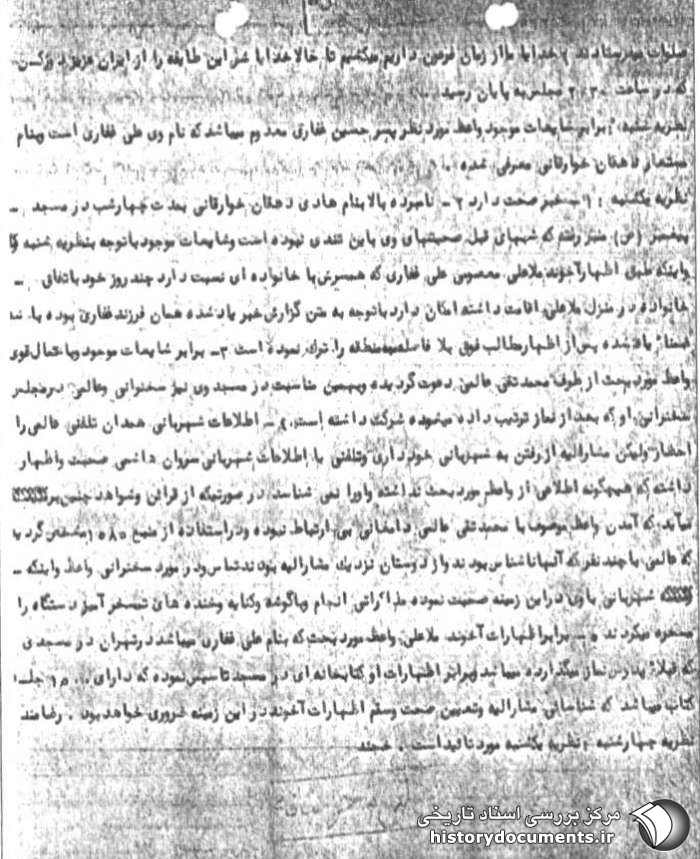 صلوات میفرستادند ) خدایا ما از زبان فرمین داریم میکشیم تا حالا خدایا شر این طایفه را از ایران عزیز
که در ساعت ۲۰۳۰ مجلس به پایان رسید
نظریه شنبه : برابر شایعات موجود واعظ مورد نظر پسر حسین غفاری معدوم میباشد که نام وی علی غفاری است وبنام
مستعار دهقان خوارقانی معرفی شده
نظریه یکشنبه : ۱- خبر صحت دارد ۲- نامبرده بالا بنام هادی دهقان خوارقانی بمدت چهارشب در مسجد
پیغمبر (ص) منبر رفته که شبهای قبل صحبتهای وی باین تندی نبوده است وشایعات موجود باتوجه بنظریه شنبه
واینکه طبق اظهار آخوند ملاعلی معصومی علی غفاری که همسرش با خانواده ای نسبت دارد چند روز خود باتفاق
خانواده در منزل ملاعلی اقامت داشته امکان دارد باتوجه به متن گزارش خبر یاد شده همان فرزند غفاری بوده باشد
یاد شده پس از اظهار مطالب فوق بلا فاصله منطقه را ترک نموده است ۳- برابر شایعات موجود وباحتمال قوی
واعظ مورد بحث از طرف محمدتقی عالمی دعوت گردیده وبهمین مناسبت در مسجد وی نیز سخنرانی وعالمی در مجلس
سخنرانی او که بعد از نماز ترتیب داده میشوده شرکت داشته است ۴- اطلاعات شهربانی همدان تلفنی عالمی را
احضار ولیکن مشارالیه از رفتن به شهربانی خودداری وتلفنی با اطلاعات شهربانی سروان هاشمی صحبت واظهار
داشته که هیچگونه اطلاعی از واعظ مورد بحث نداشته واورا نمی شناسد در صورتیکه از قرائن وشواهد چنین بر
میآید که آمدن واعظ موصوف با محمدتقی عالمی دامغانی بی ارتباط نبوده ودر استفاده از منبع ۱۰۸۰ مشخص گردیده
که عالمی با چند نفر که آنها ناشناس بودند واز دوستان نزدیک مشارالیه بودند تماس ودر مورد سخنرانی واعظ واینکه
شهربانی با وی در این زمینه صحبت نموده مذاکراتی انجام وباگوشه وکنایه وخنده های تمسخر آمیز دستگاه را
مسخره میکردند ۵- برابر اظهارات آخوند ملاعلی واعظ مورد بحث که بنام علی غفاری میباشد در تهران در مسجدی
که قبلا پدرش نماز میگذارده میباشد وبرابر اظهارات او کتابخانه ای در مسجد تاسیس نموده که دارای جلد
کتاب میباشد که شناسائی مشارالیه وتعیین صحت وسقم اظهارات آخوند در این زمینه ضروری خواهد بود . رضامند
نظریه چهارشنبه : نظریه یکشنبه مورد تائید است . خجند
مرکز بررسی اسناد تاریخی
historydocuments.ir